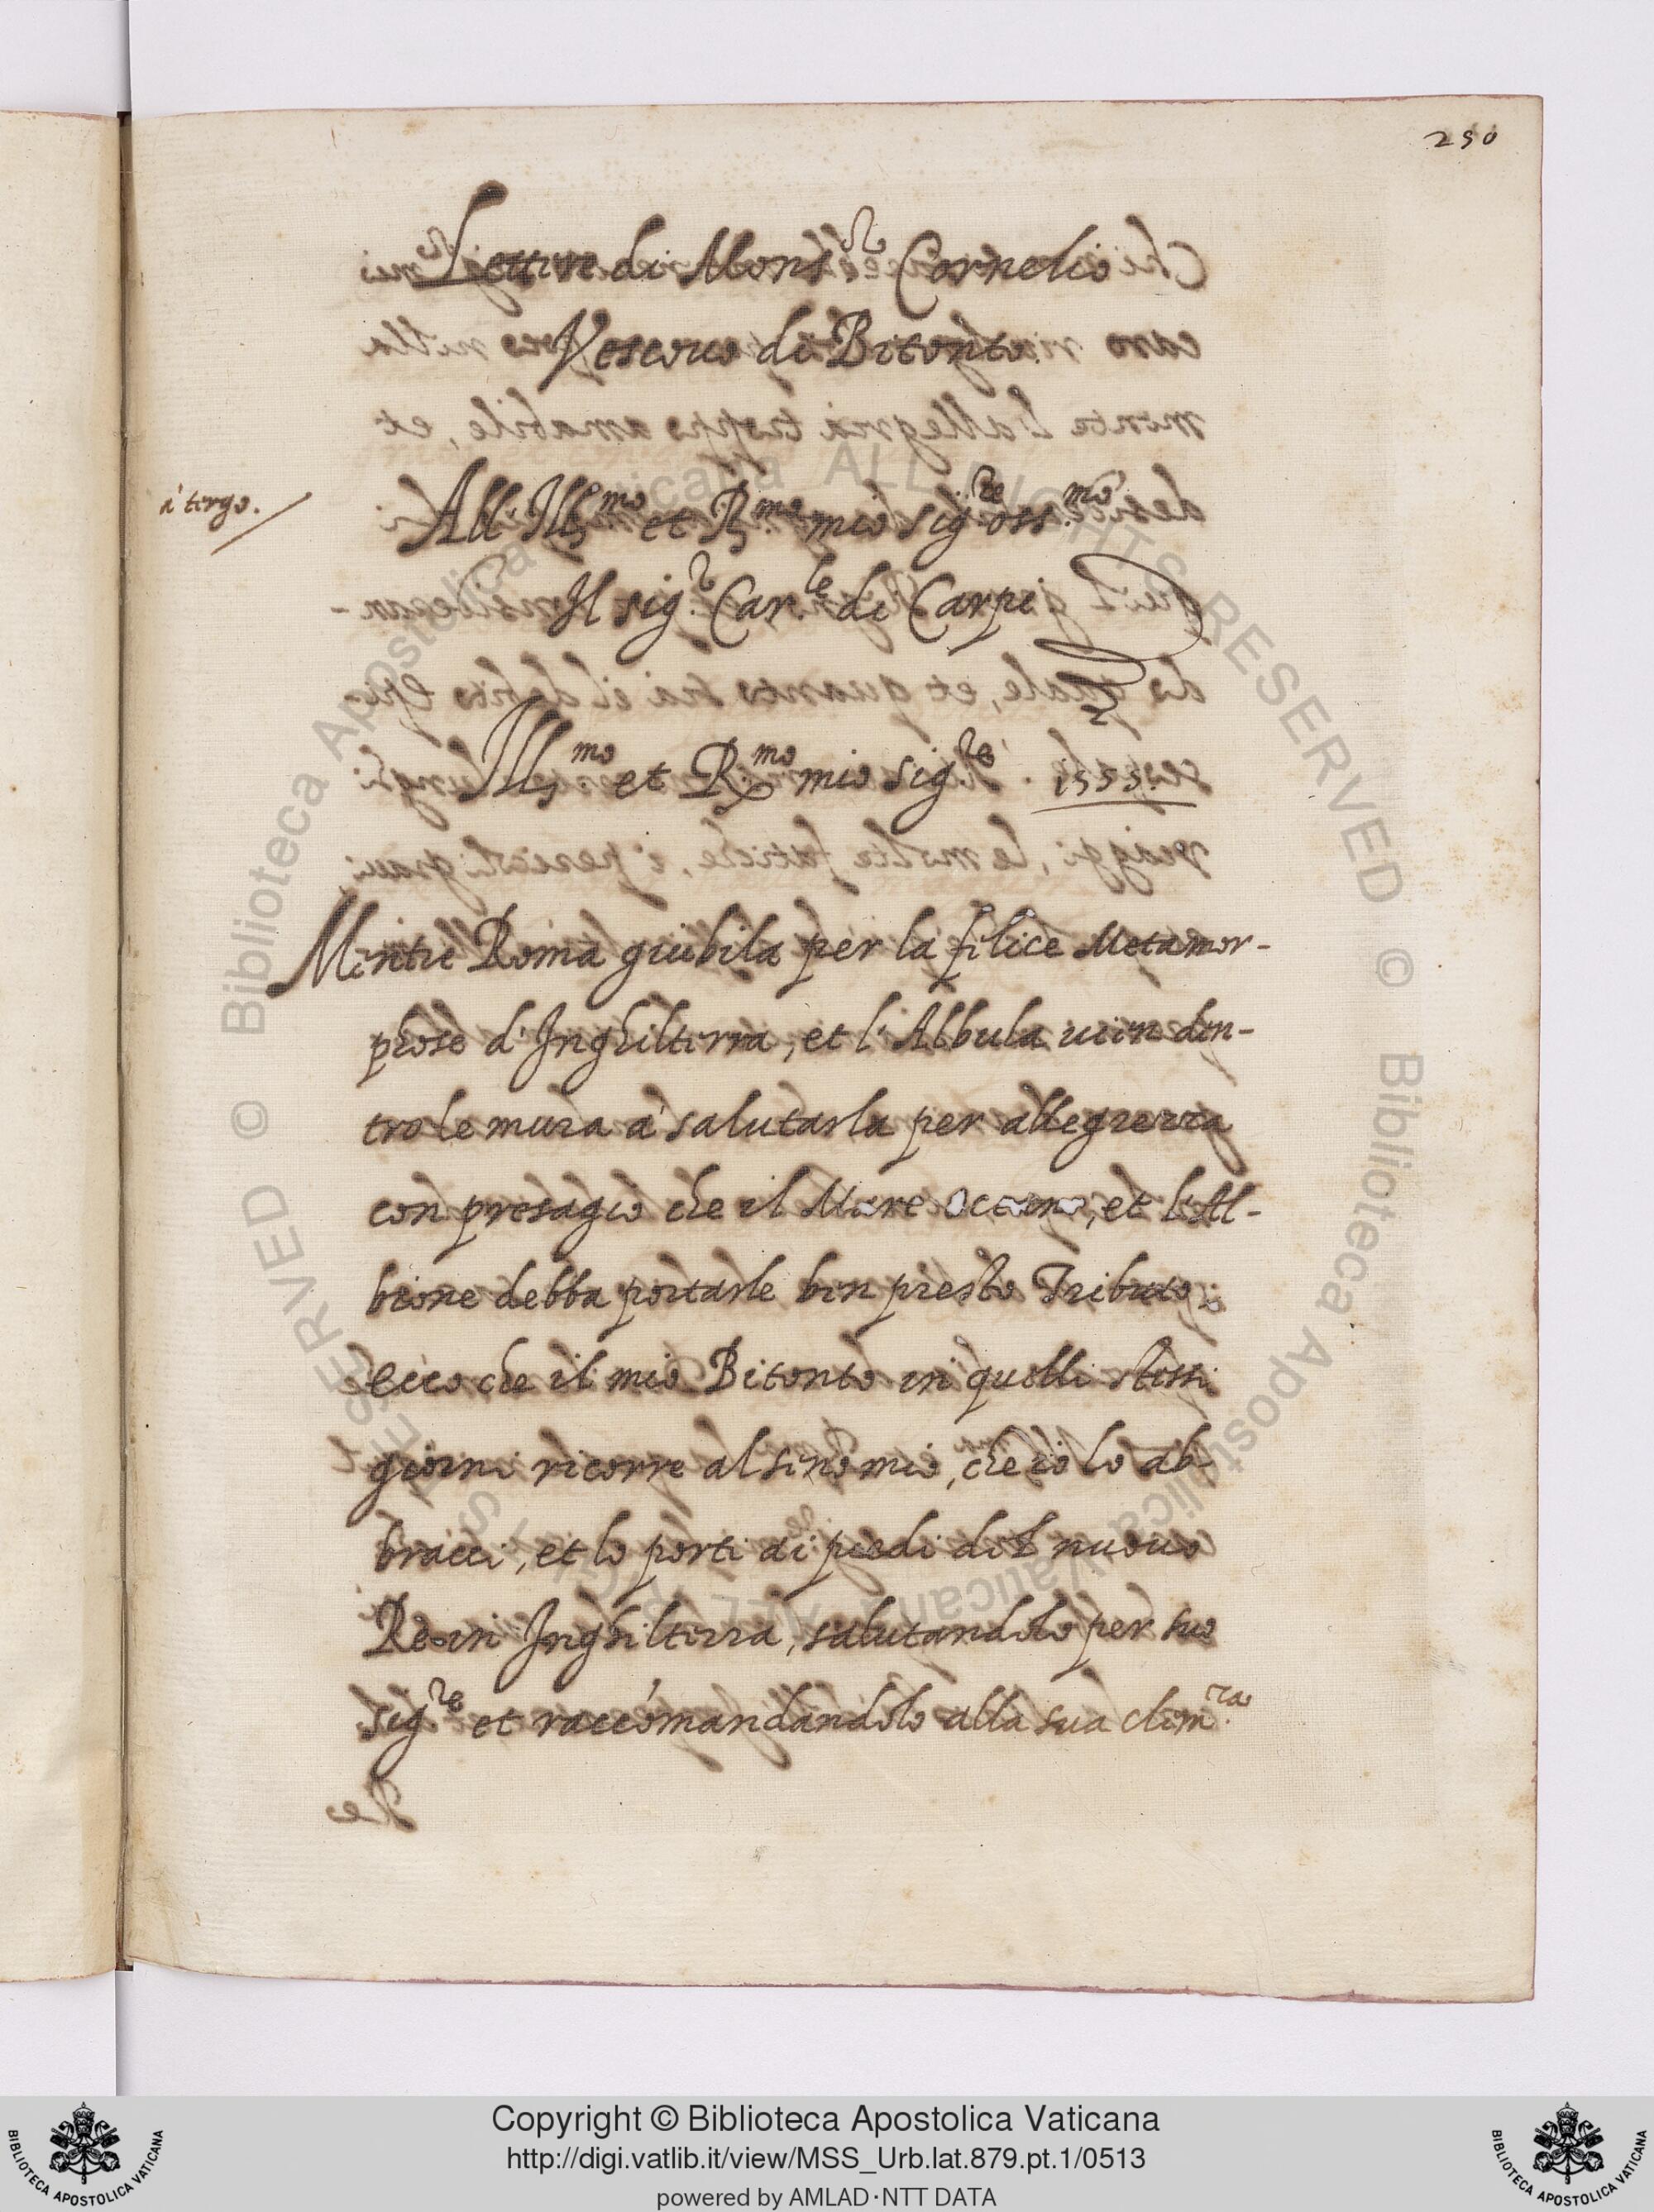 250
Lettere di Mons.r Cornelio
Vescouo di Bitonto.
à tergo.
All' Ill.mo et R.mo mio sig.re oss.mo
Il sig.r Car.le di Carpi
Ill.mo et R.mo mio sig.re 1553.
Mentre Roma giubila per la felice Metamor-
phose d'Inghilterra, et l'Albula vien den-
tro le mura à salutarla per allegrezza
con presagio che il Mare Oceano, et l'Al-
bione debba portarle ben presto Tributo;
ecco che il mio Bitonto in quelli stessi
giorni ricorre al seno mio, che io lo ab-
bracci, et lo porti ai piedi del nuouo
Re in Inghilterra, salutandolo per suo
sig.re et raccomandandolo alla sua clem.za
Copyright © Biblioteca Apostolica Vaticana
http://digi.vatlib.it/view/MSS_Urb.lat.879.pt.1/0513
powered by AMLAD·NTT DATA
BIBLIOTECA APOSTOLICA VATICANA
BIBLIOTECA APOSTOLICA VATICANA
© Biblioteca Apostolica Vaticana ALL RIGHTS RESERVED
© Biblioteca Apostolica Vaticana ALL RIGHTS RESERVED